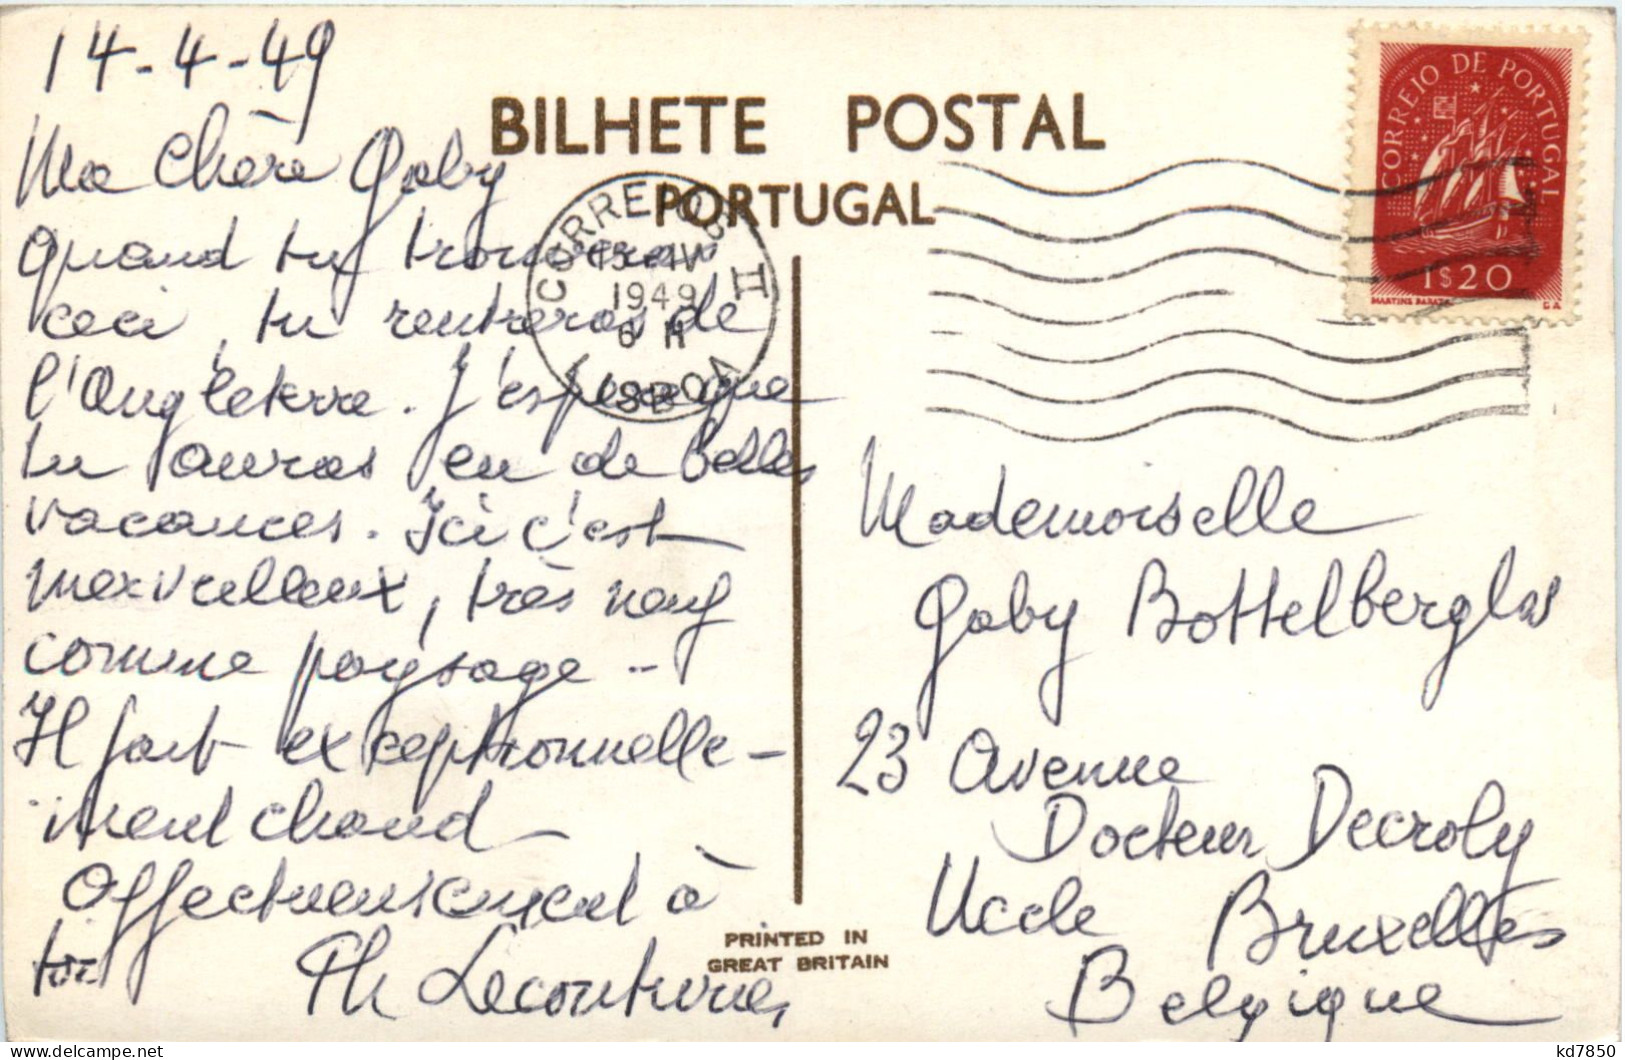 14-4-49
BILHETE POSTAL
PORTUGAL
Ma chère Gaby
quand tu trouveras
ceci, tu rentreras de
l'Angleterre. J'espère que
tu auras eu de belles
vacances. Ici c'est
merveilleux, très neuf
comme paysage..
Il fait exceptionnelle-
ment chaud
Affectueusement à
toi
Th
CORREIOS
15 IV
1949
6 H
II
LISBOA
CORREIO DE PORTUGAL
1$20
MARTINS BARATA
Mademoiselle
Gaby Bottelberghs
23 Avenue
Docteur Decroly
Uccle Bruxelles
Belgique
PRINTED IN
GREAT BRITAIN
kd7850